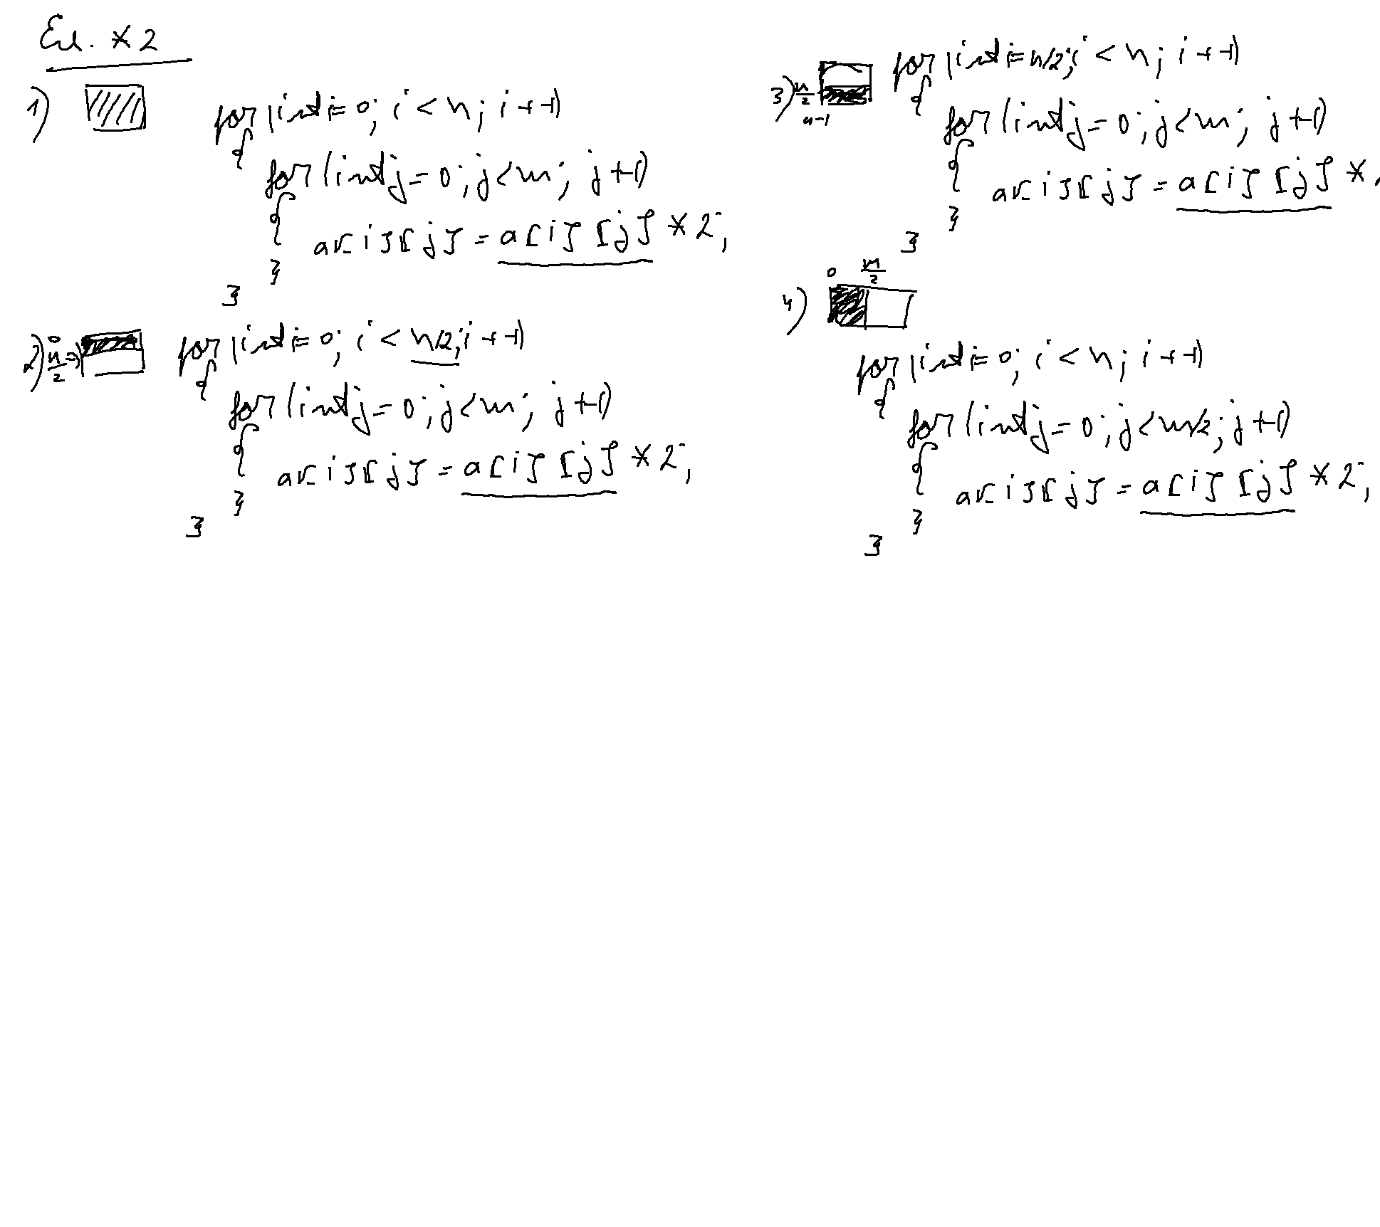 Ел. * 2
1)
for (int i=0; i < n; i++)
{
for (int j=0; j<m; j++)
{
a[i][j] = a[i][j] * 2;
}
}
2) 0
n/2 →
for (int i=0; i < n/2; i++)
{
for (int j=0; j<m; j++)
{
a[i][j] = a[i][j] * 2;
}
}
3) n/2
n-1
for (int i=n/2; i < n; i++)
{
for (int j=0; j<m; j++)
{
a[i][j] = a[i][j] *
}
}
4) 0 m/2
for (int i=0; i < n; i++)
{
for (int j=0; j<m/2; j++)
{
a[i][j] = a[i][j] * 2;
}
}